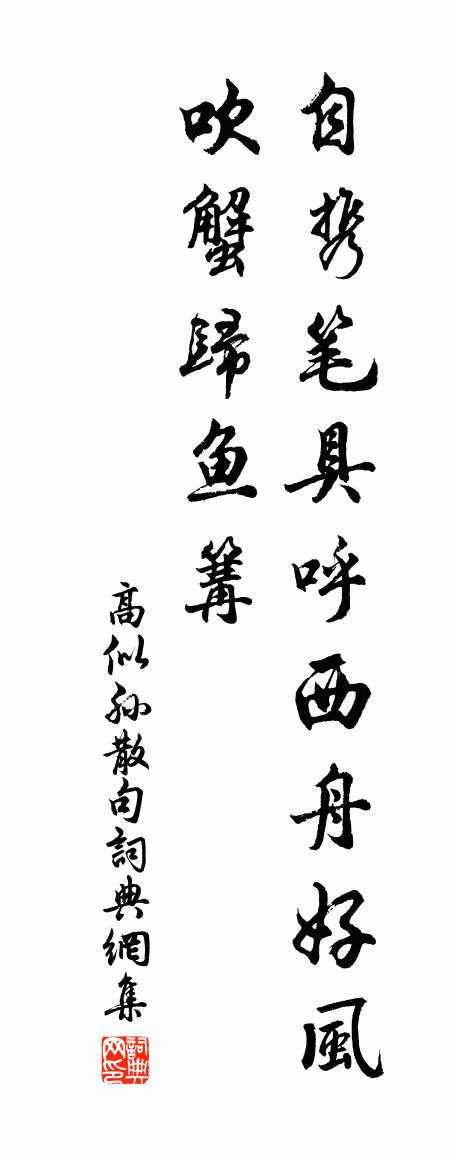 自携笔具呼西舟好風
吹蟹歸魚篝
高似孙散句詞典網集
詞典网印